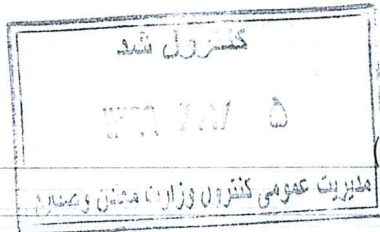 کنترول شد
۵
مدیریت عمومی کنترول وزارت معادن و صنایع